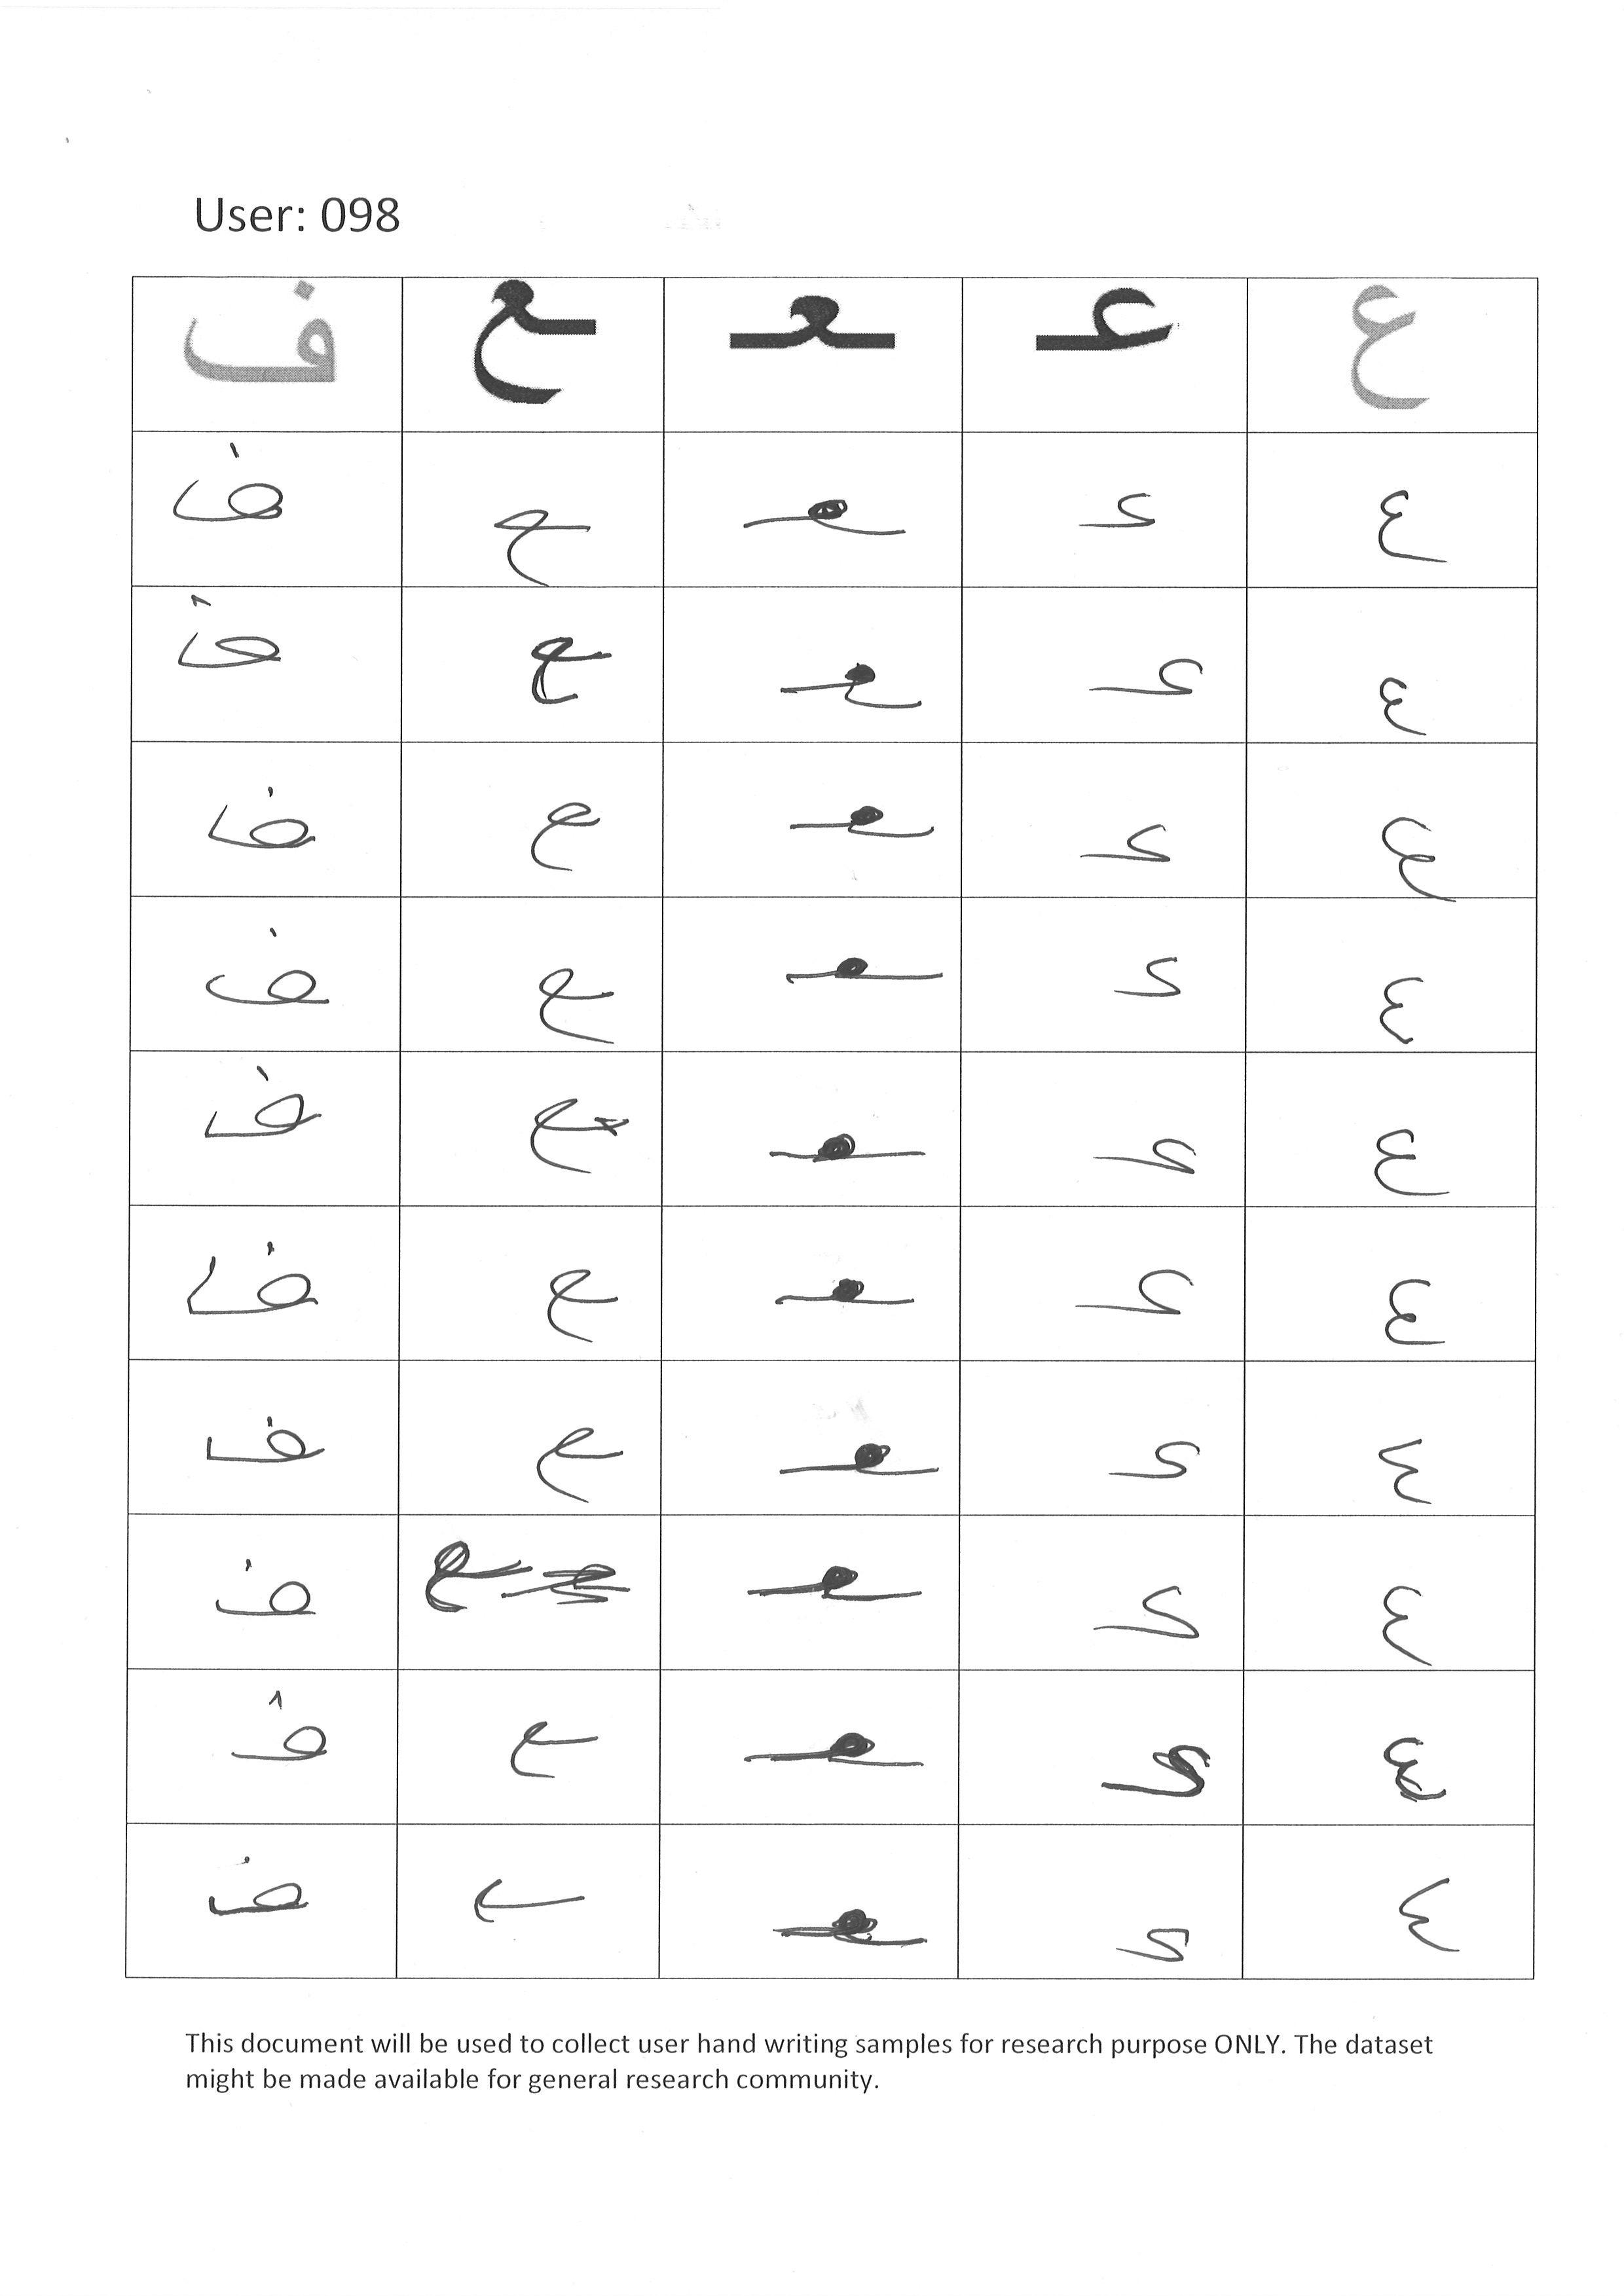 User: 098
ع عـ ـعـ ـع ف
ع عـ ـعـ ـع ف
ع عـ ـعـ ـع ف
ع عـ ـعـ ـع ف
ع عـ ـعـ ـع ف
ع عـ ـعـ ـع ف
ع عـ ـعـ ـع ف
ع عـ ـعـ ـع ف
ع عـ ـعـ ـع ف
ع عـ ـعـ ـع ف
ع عـ ـعـ ـع ف
This document will be used to collect user hand writing samples for research purpose ONLY. The dataset
might be made available for general research community.